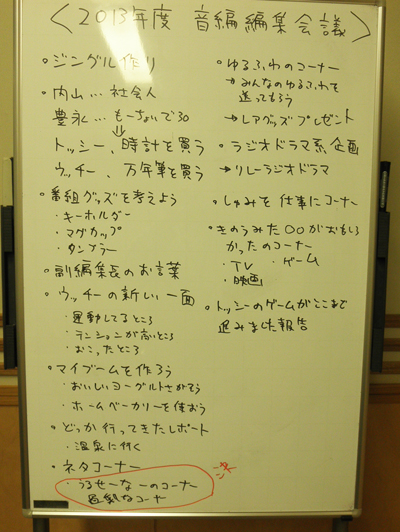 〈2013年度 音編編集会議〉
・ジングル作り
・内山…社会人
豊永…もーちょいで30
↓
トッシー、時計を買う
ウッチー、万年筆を買う
・番組グッズを考えよう
・キーホルダー
・マグカップ
・タンブラー
・副編集長のお言葉
・ウッチーの新しい一面
・運動してるところ
・テンションが高いところ
・おこったところ
・マイブームを作ろう
・おいしいヨーグルトさがそう
・ホームベーカリーを使おう
・どっか行ってきたレポート
・温泉に行く
・ネタコーナー
・うるせーなーのコーナー
なコーナー
・ゆるふわのコーナー
→みんなのゆるふわを
送ってもらう
→レアグッズプレゼント
・ラジオドラマ系企画
→リレーラジオドラマ
・しゅみを仕事にコーナー
・きのうみた〇〇がおもしろ
かったのコーナー
・TV ・ゲーム
・映画
・トッシーのゲームがここまで
進みました報告